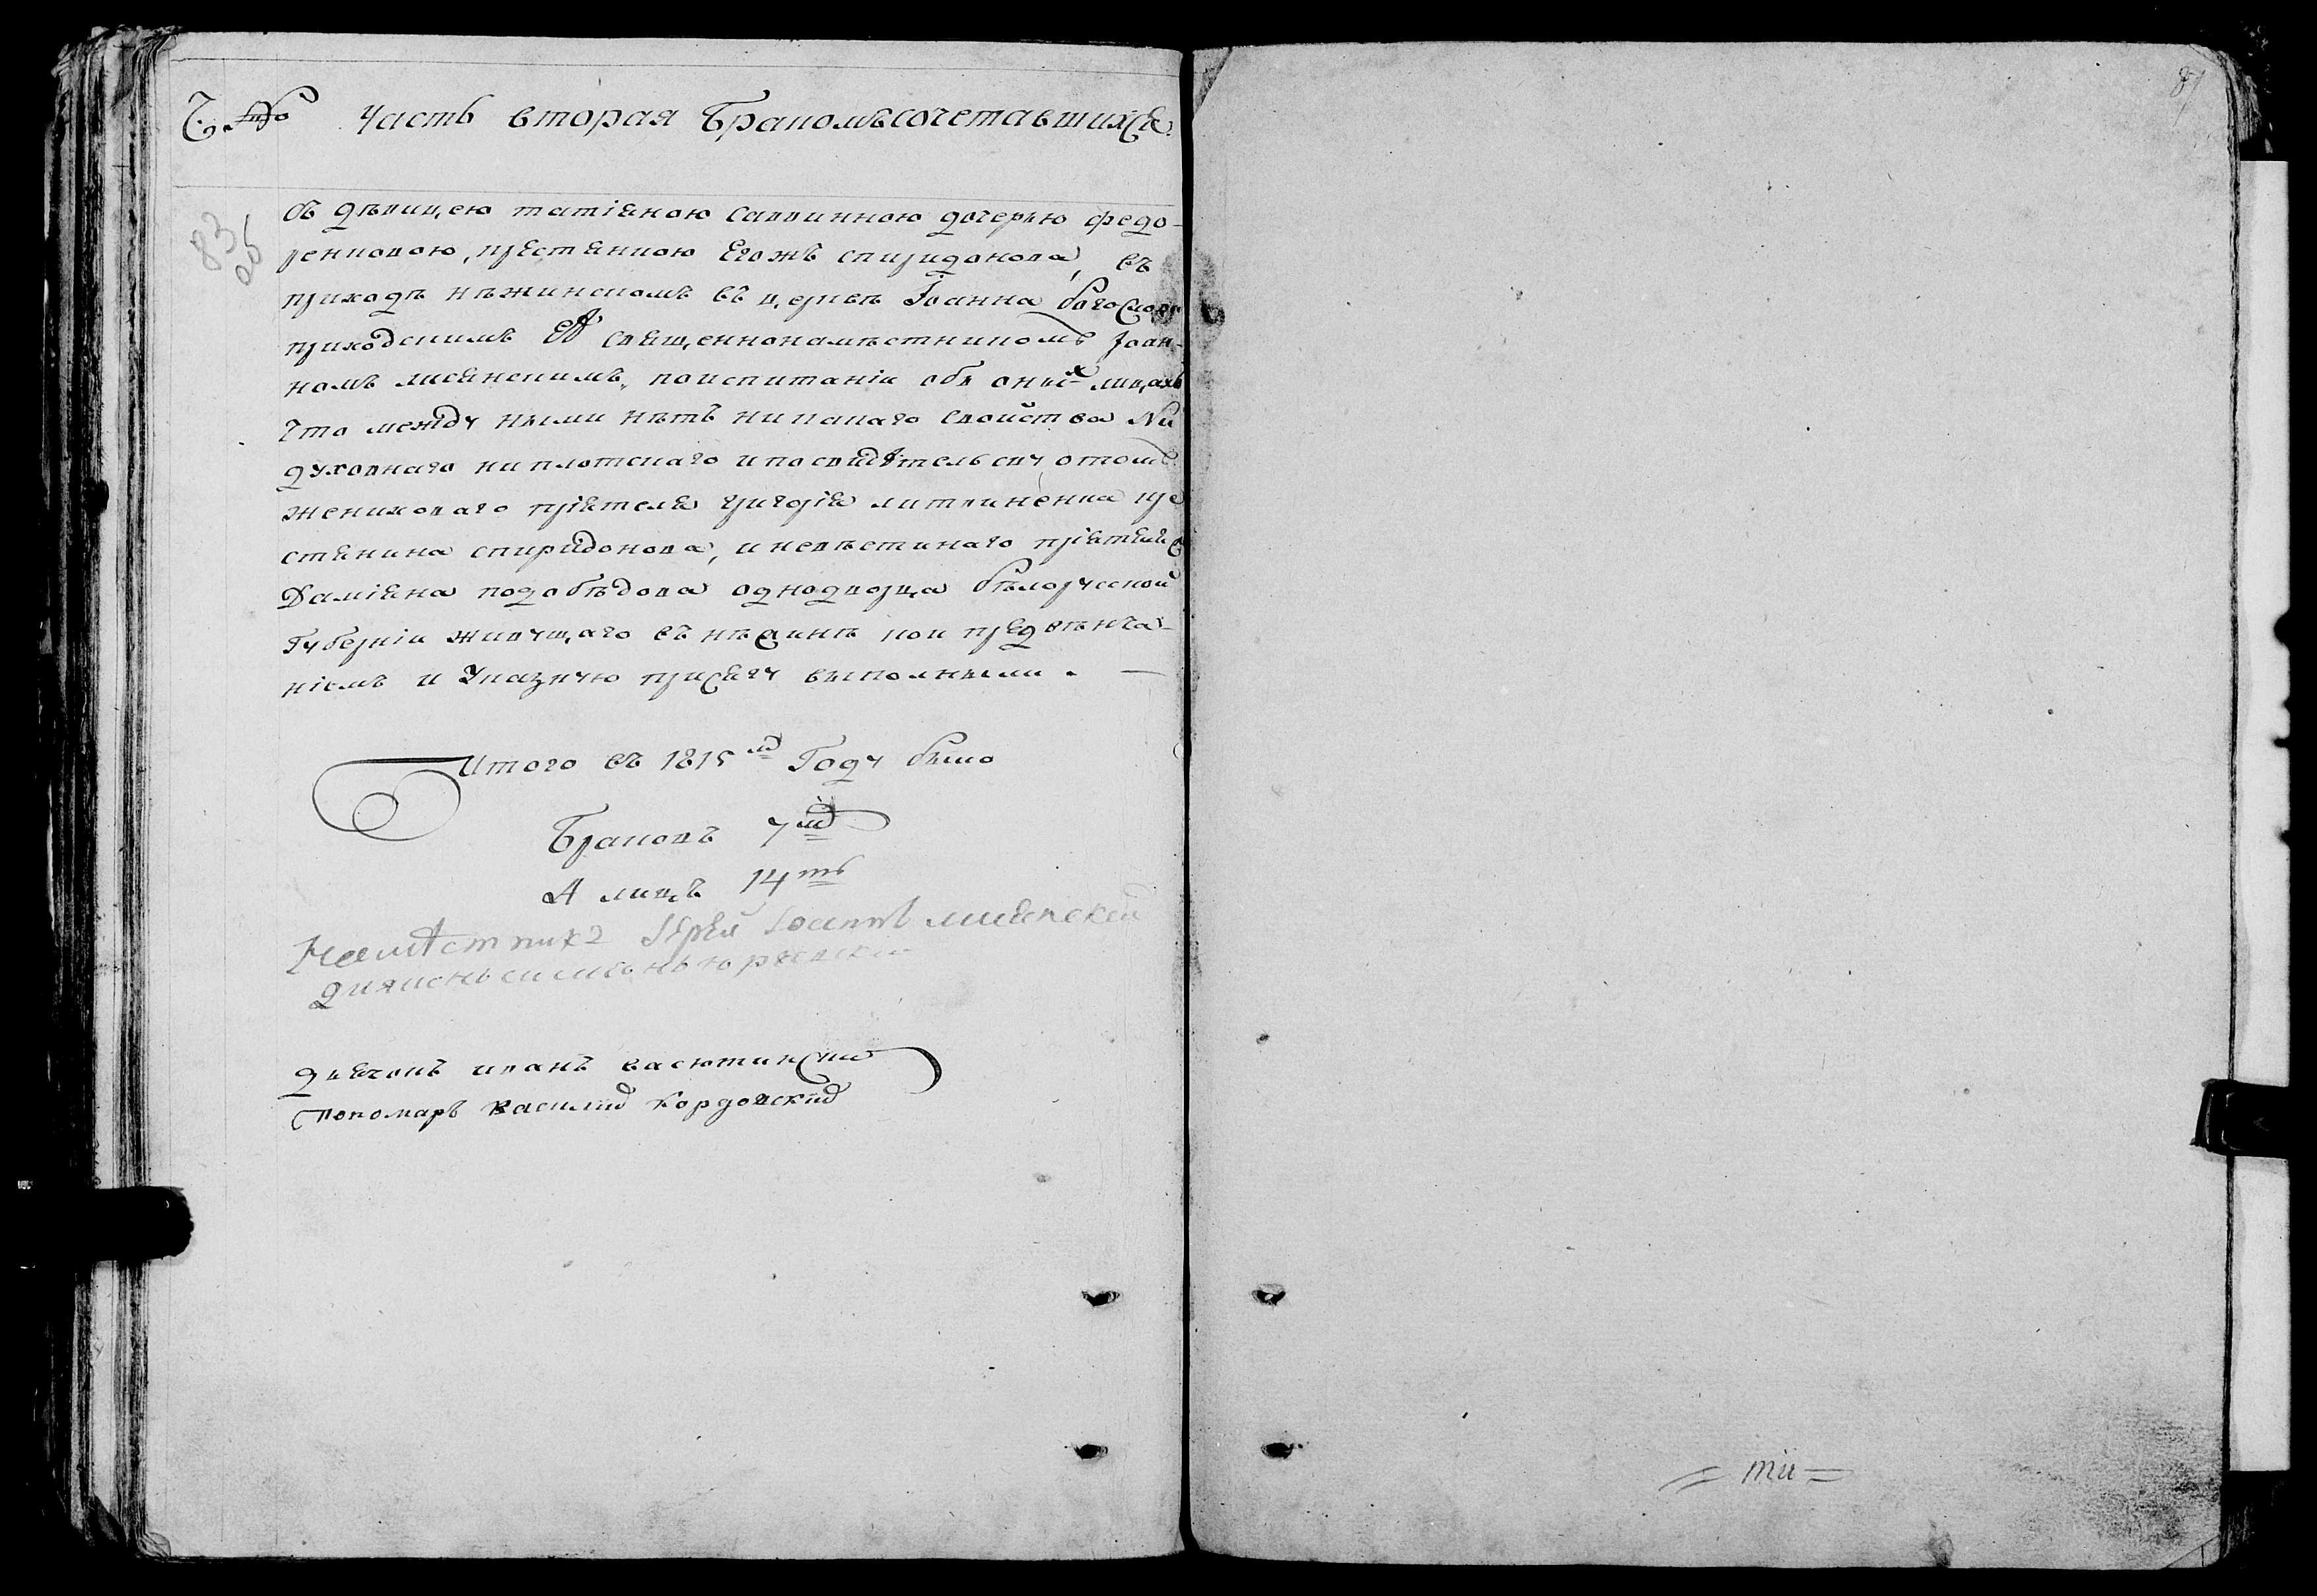 Часть вторая Бракомъ сочетавшихся
83
об
87
съ дѣвицею татіяною саввинною дочерью федо-
ренковою, крестянкою Егожъ спиридонова, въ
приходѣ нѣжинскомъ въ церквѣ Іоанна богослова
приходскимъ священнонамѣстникомъ Іоан-
номъ лисянскимъ, поиспитаніи объ оныхъ лицахъ
что между ними нѣтъ никакаго свойства ни
духовнаго ни плотскаго и по свидѣтельству отомъ
жениховаго пріятеля григорія литвиненка кре
стянина спиридонова, и невѣстинаго пріятеля
Даміяна подобѣдова однодворца бѣлоруской
Губерніи живущаго въ нѣжинѣ кои предвѣнча-
ніемъ и Указную присягу выполныли. —
Итого въ 1815мъ Году было
Браковъ 7мь
А лицъ 14ть
Намѣстникъ Іерей Іоаннъ лисянскій
диякон симеонъ
дячокъ иванъ васютинскій
Пономаръ василій Кордовскій
= ти =